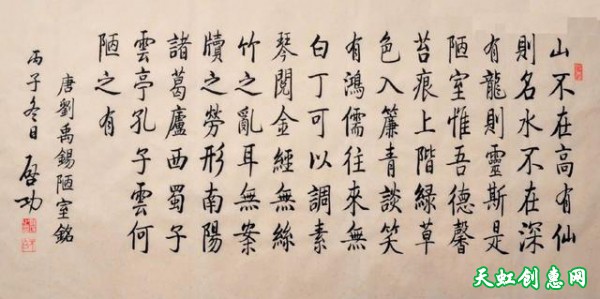 山不在高有仙
則名水不在深
有龍則靈斯是
陋室惟吾德馨
苔痕上階綠草
色入簾青談笑
有鴻儒往來無
白丁可以調素
琴閱金經無絲
竹之亂耳無案
牘之勞形南陽
諸葛廬西蜀子
雲亭孔子雲何
陋之有
唐劉禹錫陋室銘
丙子冬日 启功
天虹创惠网